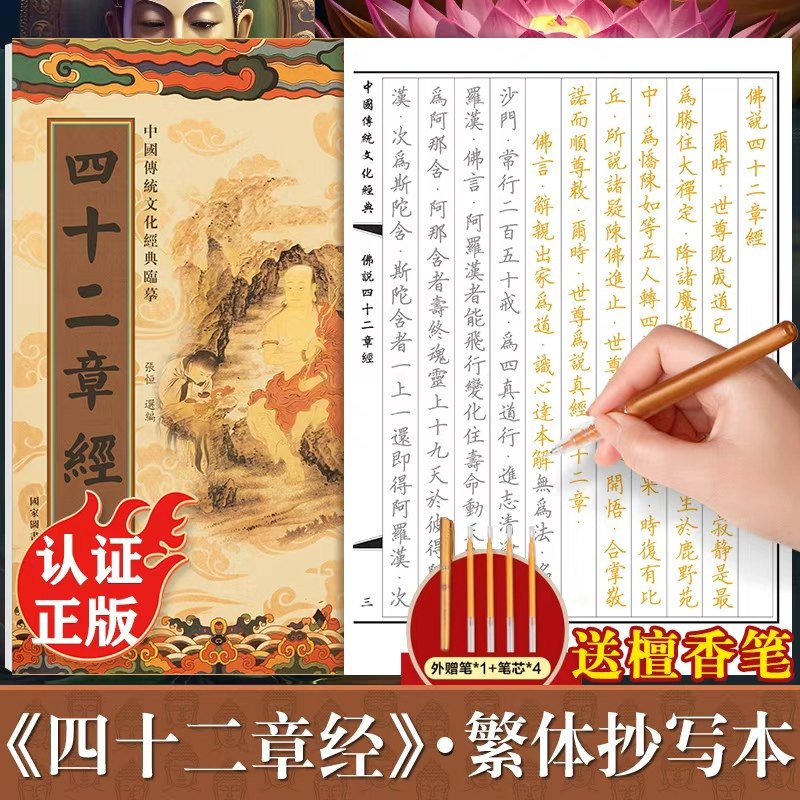 中國傳統文化經典臨摹
四十二章經
張恒 選編
國家圖書
认证
正版
佛説四十二章經
爾時．世尊既成道已 寂静是最
為勝住大禪定．降諸魔道 生於鹿野苑
中．為憍陳如等五人轉四 果．時復有比
丘．所説諸疑陳佛進止．世尊 開悟．合掌敬
諾而順尊敕．爾時．世尊為説真經 十二章．
佛言．辭親出家為道．識心達本解無為法．名
沙門．常行二百五十戒．為四真道行．進志清
羅漢．佛言．阿羅漢者能飛行變化住壽命動天
為阿那含．阿那含者壽終魂靈上十九天於彼得
漢．次為斯陀含．斯陀含者一上一還即得阿羅漢．次
中國傳統文化經典
佛説四十二章經
三
外赠笔*1+笔芯*4
送檀香笔
《四十二章经》·繁体抄写本